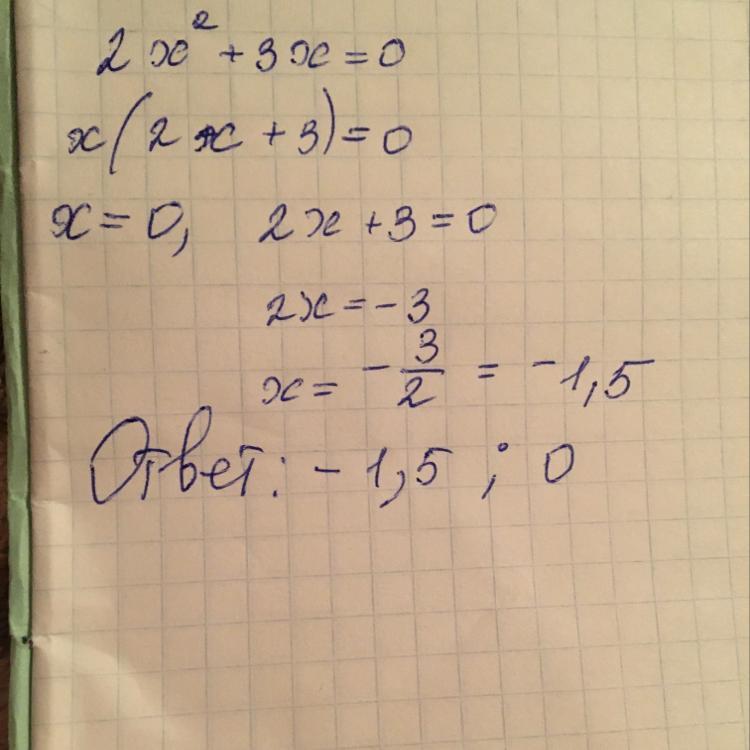 2x² + 3x = 0
x(2x + 3) = 0
x = 0, 2x + 3 = 0
2x = -3
x = -3/2 = -1,5
Ответ: -1,5 ; 0